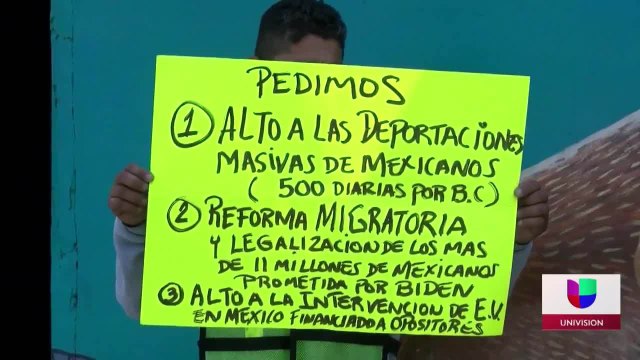 PEDIMOS
1 ALTO A LAS DEPORTACIONES
MASIVAS DE MEXICANOS
( 500 DIARIAS POR B.C)
2 REFORMA MIGRATORIA
Y LEGALIZACION DE LOS MAS
DE 11 MILLONES DE MEXICANOS
PROMETIDA POR BIDEN
3 ALTO A LA INTERVENCION DE E.U.
EN MEXICO FINANCIADO A OPOSITORES
UNIVISION